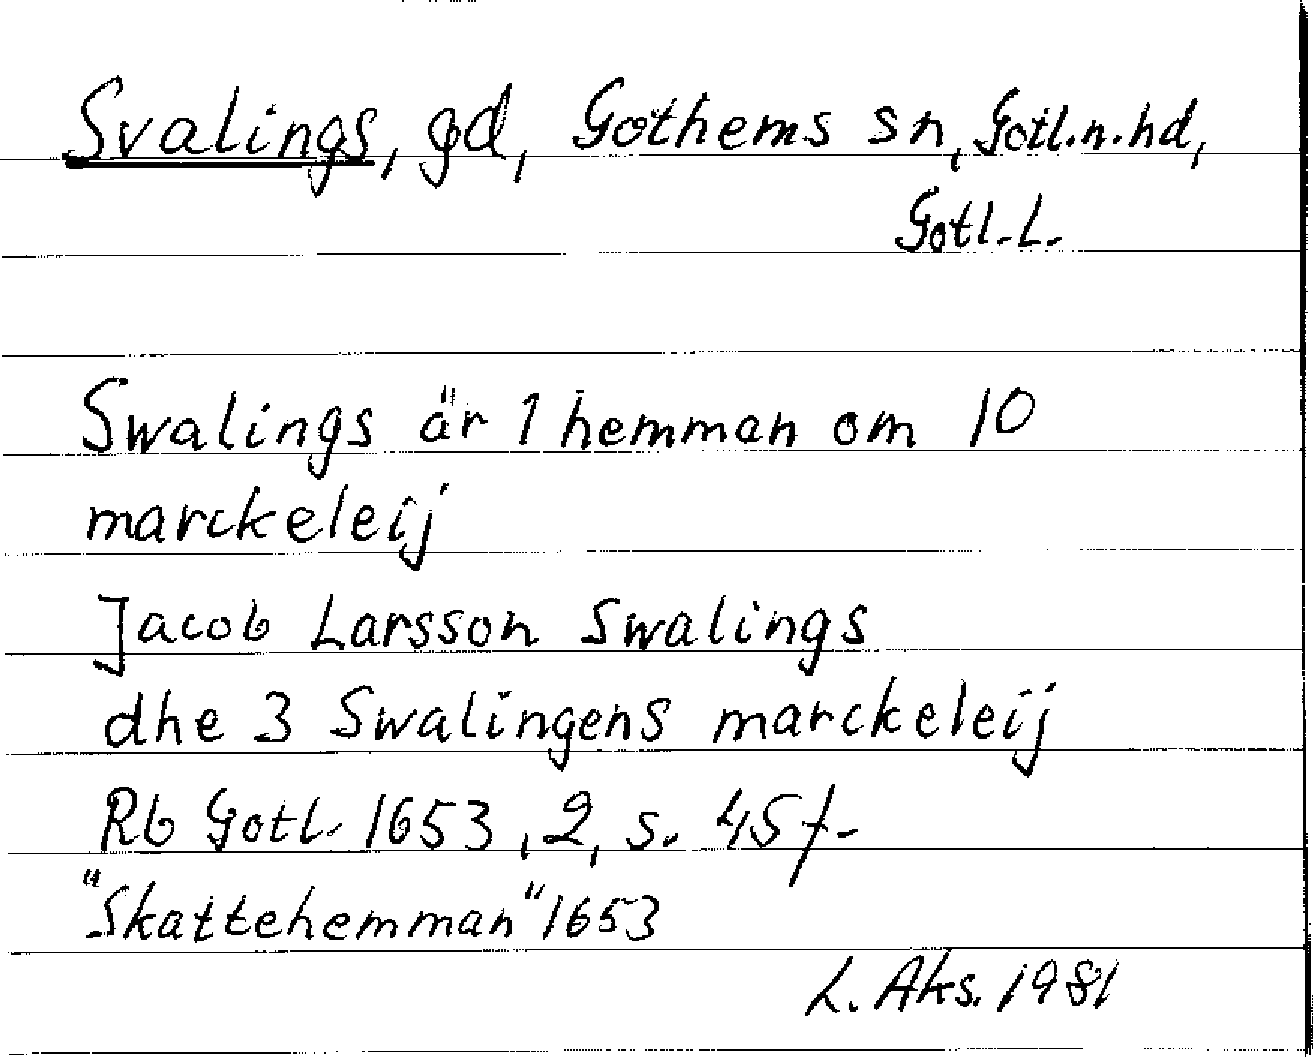 Svalings, gd, Gothems sn, Gotl.n.hd,
Gotl.L.
Swalings är 1 hemman om 10
marckeleij
Jacob Larsson Swalings
dhe 3 Swalingens marckeleij
Rb Gotl. 1653, 2, s. 45 f.
"Skattehemman" 1653
L. Aks. 1981